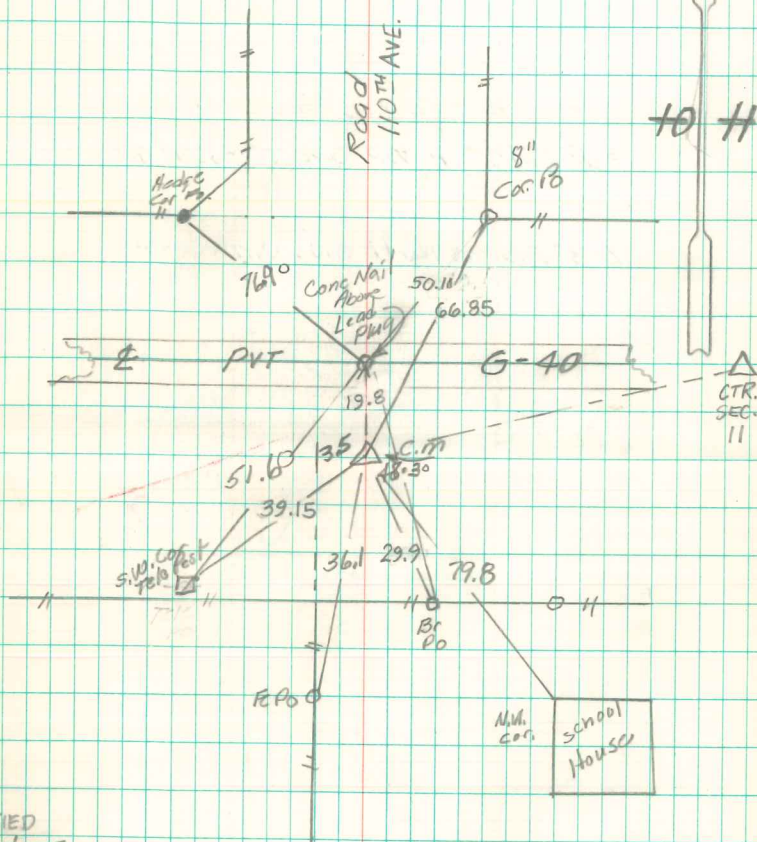 Road
110TH AVE.
Hedge
Cor Po
8"
Cor. Po
Conc Nail
Above
Lead
Plug
50.1
66.85
℄ PVT G-40
CTR.
SEC.
11
19.8
3.5
C.M
48.3°
51.6
39.15
S.W. Cor
Tele Pest
36.1
29.9
79.8
Br
Po
FE PO
N.W.
cor.
School
House
IED